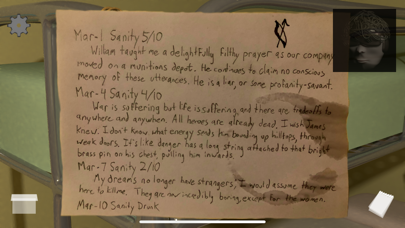 Mar-1 Sanity 5/10
William taught me a delightfully filthy prayer as our company
moved on a munitions depot. He continues to claim no conscious
memory of these utterances. He is a liar, or some profanity-savant.
Mar-4 Sanity 4/10
War is suffering but life is suffering and there are tradeoffs to
anywhere and anywhen. All heroes are already dead, I wish James
knew. I don't know what energy sends him bounding up hilltops, through
weak doors. It's like danger has a long string attached to that bright
brass pin on his chest, pulling him inwards.
Mar-7 Sanity 2/10
My dreams no longer have strangers, I would assume they were
here to kill me. They are now incredibly boring, except for the women.
Mar-10 Sanity Drunk